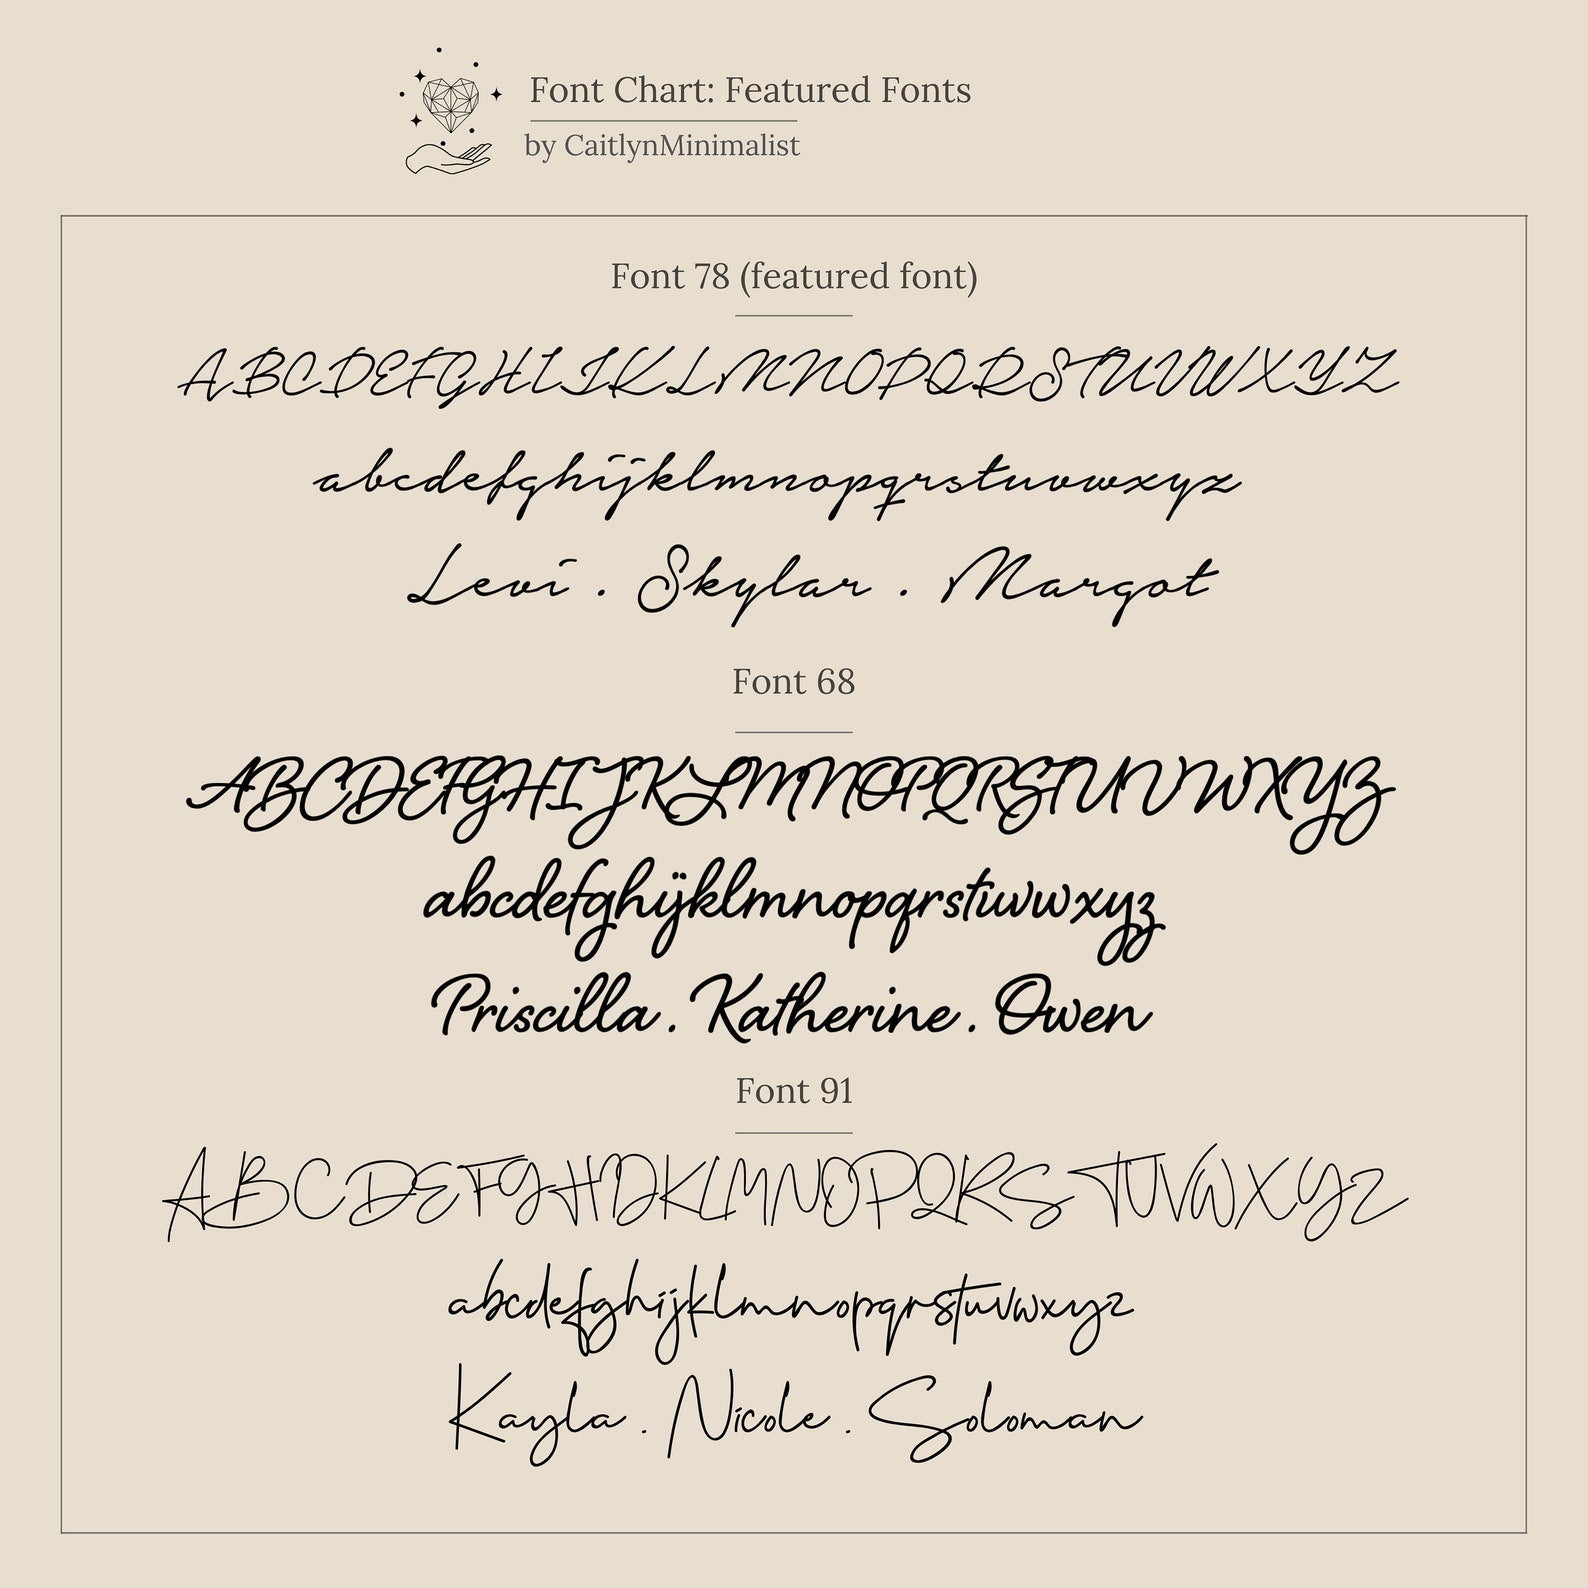 Font Chart: Featured Fonts
by CaitlynMinimalist
Font 78 (featured font)
ABCDEFGHIJKLMNOPQRSTUVWXYZ
abcdefghijklmnopqrstuvwxyz
Levi . Skylar . Margot
Font 68
ABCDEFGHIJKLMNOPQRSTUVWXYZ
abcdefghijklmnopqrstuvwxyz
Priscilla . Katherine . Owen
Font 91
ABCDEFGHIJKLMNOPQRSTUVWXYZ
abcdefghijklmnopqrstuvwxyz
Kayla . Nicole . Soloman